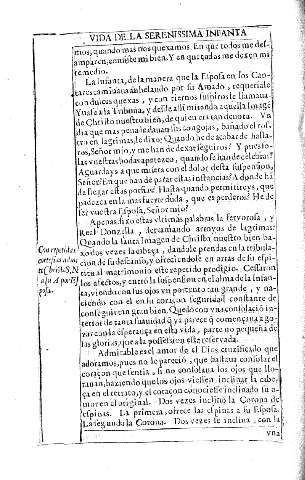 VIDA DE LA SERENISSIMA INFANTA
mos, quando mas nos quexamos. En que todos me des-
amparen, emiste mi bien. Y en que todas me dexen mi
remedio.
La Infanta, de la manera que la Esposa en los Can-
tares caminaua anhelando por su Amado, requeriale
con dulces quexas, y con tiernos suspiros le llamaua.
Yuase a la Tribuna, y desde alli miraua aquella Image
de Christo nuestro bien, de quien era tan deuota. Vn
dia que mas pena le dauan sus congojas, bañado el ros-
tro en lagrimas, le dixo: Quando he de acabar de halla-
ros, Señor mio, y me han de dexar seguiros? Y presto-
las vuestras bodas apetezco, quando se han de celebrar?
Aguardays a que muera con el dolor desta suspension,
Señor? En que han de parar estas instancias? A donde hã
de llegar estas porfias? Hasta quando permitireys, que
padezca en la mas fuerte duda, que es perderos? He de
ser vuestra Esposa, Señor mio?
Apenas dixo estas vltimas palabras la feruorosa, y
Real Donzella, derramando arroyos de lagrimas:
Quando la santa Imagen de Christo nuestro bien ba-
xo dos vezes la cabeça, dandole prendas en la tribula-
cion de su descanso, y ofreciendole en arras de su espi-
ritual matrimonio este repetido prodigio. Cessaron
los afectos, y entró la suspension en el alma de la Infan-
ta, viendo con sus ojos vn portento tan grande, y na-
ciendo con el en su coraçon seguridad constante de
conseguir tan gran bien. Quedó con vna consolació in-
terior de tanta suauidad, q̃ ya parece q̃ començaua a go-
zar con la esperança en esta vida, parte no pequeña de
las glorias, que a la possession esta reseruada.
Admirable es el amor de el Dios crucificado que
adoramos, pues no le pareció, que bastaua consolar el
coraçon que sentia, si no consolaua los ojos que llo-
rauan, haziendo que los ojos viessen inclinar la cabe-
ça en el retrato, y el coraçon conociesse inclinado su a-
mor en el original. Dos vezes inclinó la Corona de
espinas. La primera, ofrece las espinas a su Esposa.
La segunda la Corona. Dos vezes se inclina, con la
vna
Con repetidas
cortesias admi-
te Christo S. N.
a su Alteza por Es-
posa.